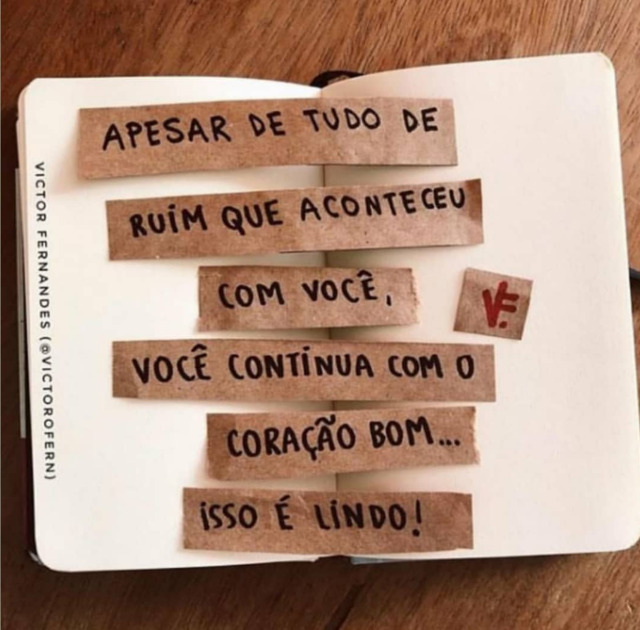 APESAR DE TUDO DE
RUIM QUE ACONTECEU
COM VOCÊ,
VF.
VOCÊ CONTINUA COM O
CORAÇÃO BOM...
ISSO É LINDO!
VICTOR FERNANDES (@VICTOROFERN)